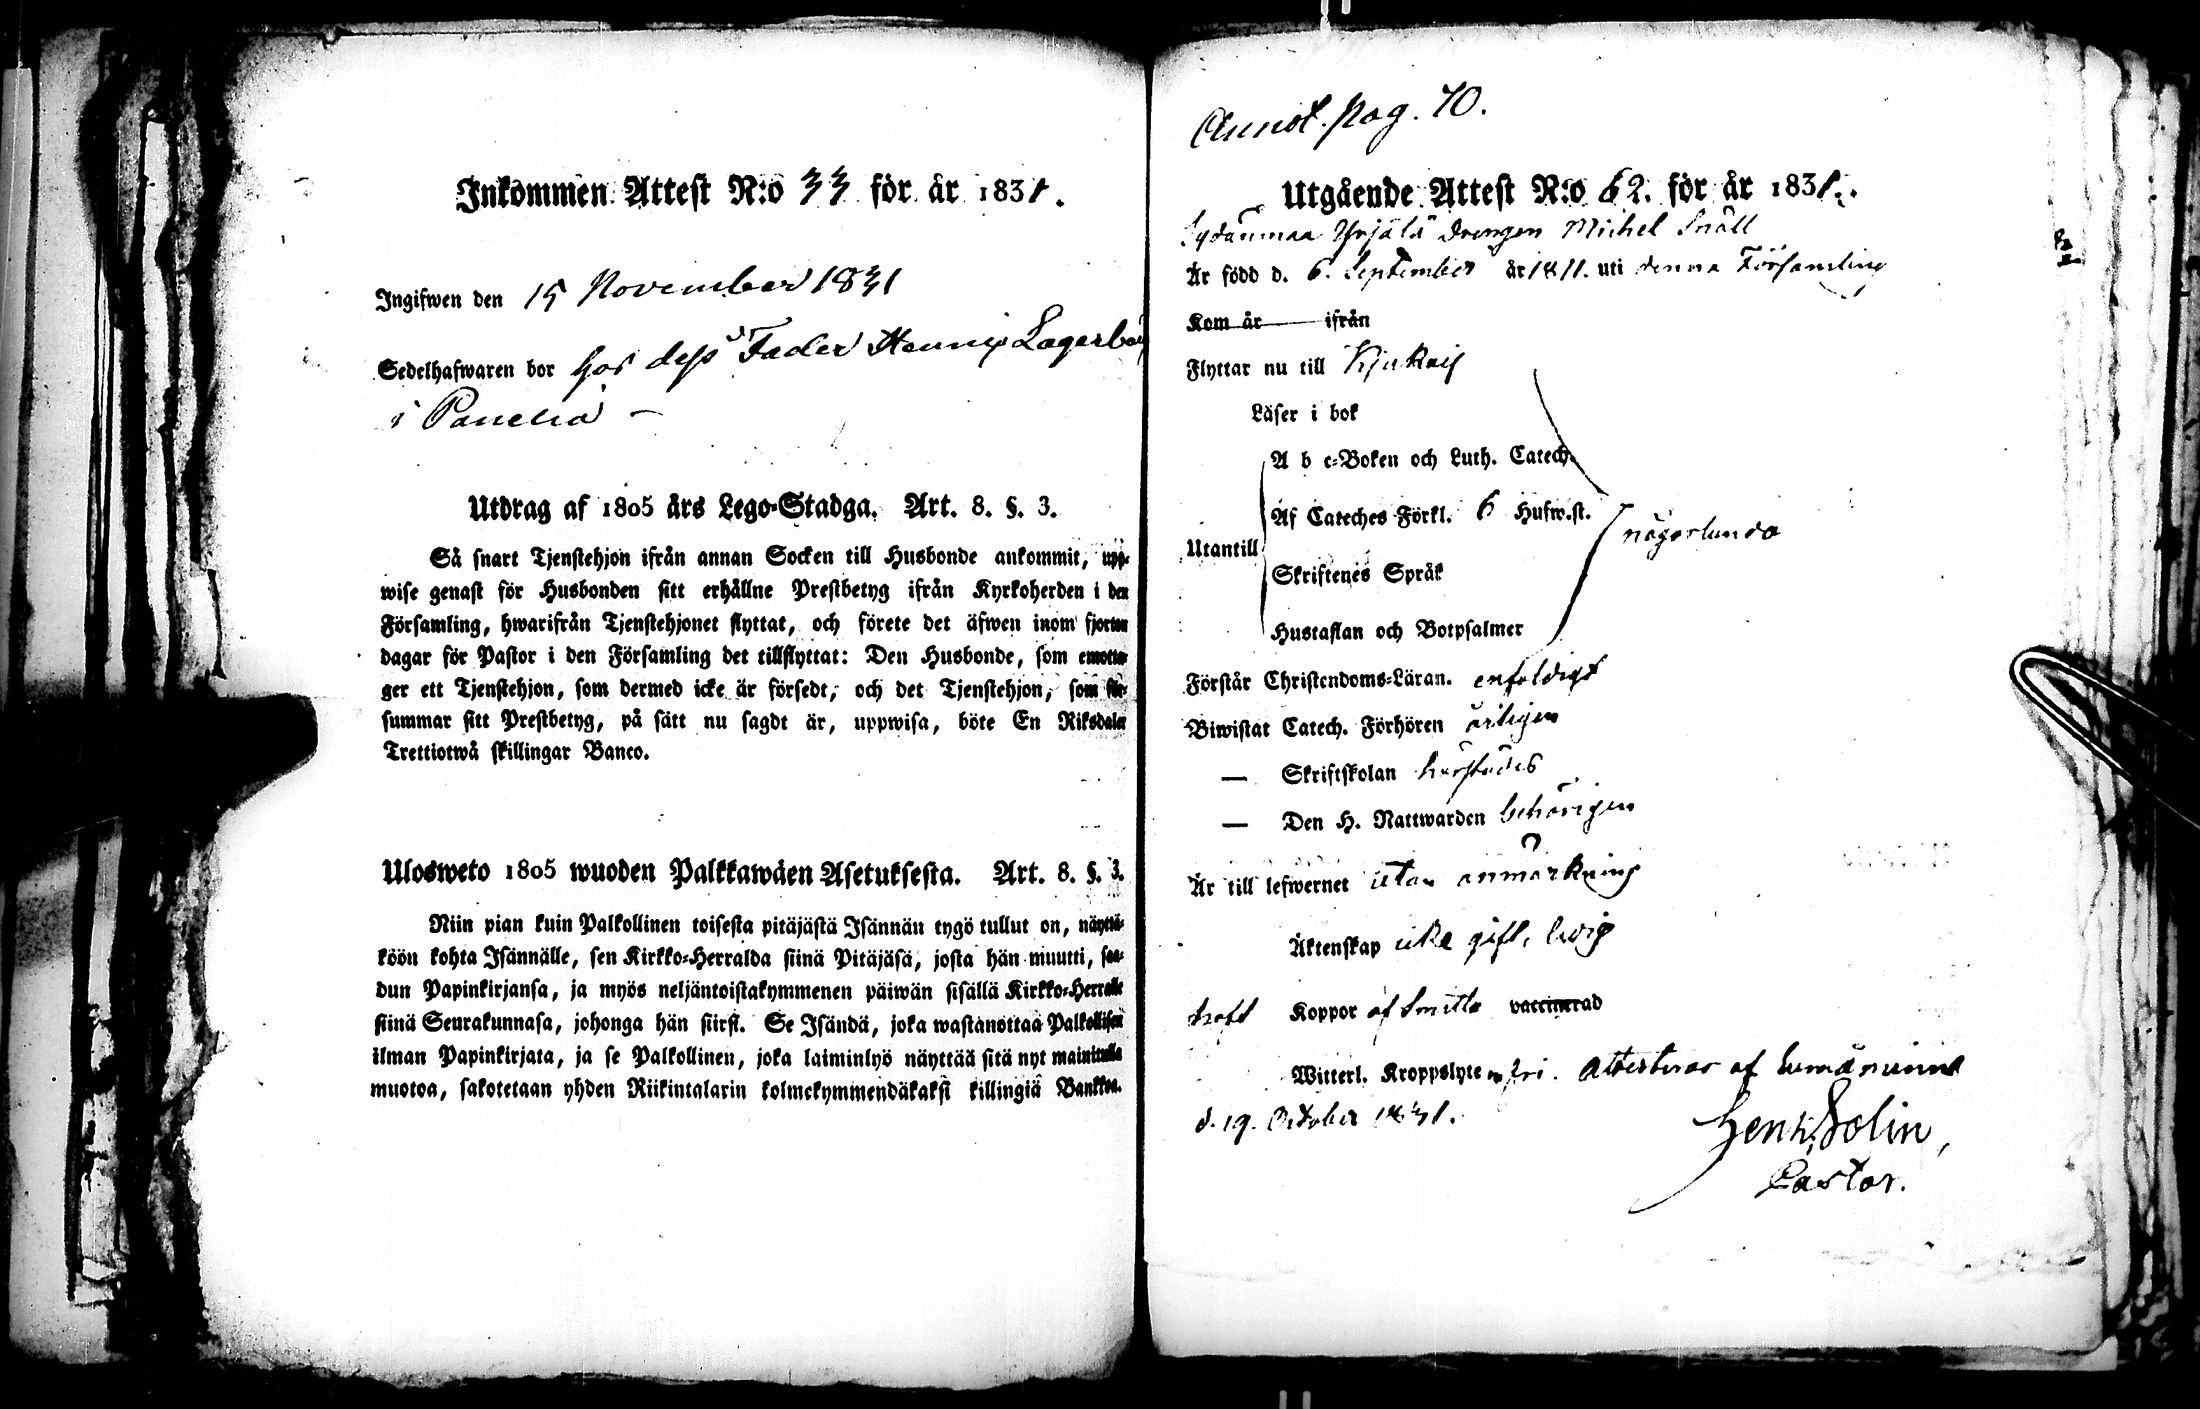 Inkommen Attest N:o 33 för år 1831.
Ingifwen den 15 November 1831
Sedelhafwaren bor hos dess Fader Hennis Lagerbo
i Panelia –
Utdrag af 1805 års Lego-Stadga. Art. 8. §. 3.
Så snart Tjenstehjon ifrån annan Socken till Husbonde ankommit, upp-
wise genast för Husbonden sitt erhållne Prestbetyg ifrån Kyrkoherden i den
Församling, hwarifrån Tjenstehjonet flyttat, och förete det äfwen inom fjorton
dagar för Pastor i den Församling det tillflyttat: Den Husbonde, som emotta-
ger ett Tjenstehjon, som dermed icke är försedt, och det Tjenstehjon, som för-
summar sitt Prestbetyg, på sätt nu sagdt är, uppwisa, böte En Riksdaler
Trettiotwå skillingar Banco.
Ulosweto 1805 wuoden Palkkawäen Asetuksesta. Art. 8. §. 3.
Niin pian kuin Palkollinen toisesta pitäjästä Isännän tygö tullut on, näyttä-
köön kohta Isännälle, sen Kirkko-Herralda siinä Pitäjäsä, josta hän muutti, saa-
dun Papinkirjansa, ja myös neljäntoistakymmenen päiwän sisällä Kirkko-Herralle
siinä Seurakunnasa, johonga hän siirsi. Se Isändä, joka wastanottaa Palkollisen
ilman Papinkirjata, ja se Palkollinen, joka laiminlyö näyttää sitä nyt mainitulla
muotoa, sakotetaan yhden Riikintalarin kolmekymmendäkaksi killingiä Bankkoa.
Annot. pag. 70.
Utgående Attest N:o 62. för år 1831.
Sydänmaa Yrjälä Drengen Michel Snäll
Är född d. 6. September år 1811. uti denna Församling
Kom år ifrån
Flyttar nu till Kjukais
Läser i bok
A b c-Boken och Luth. Catech.
Af Cateches Förkl. 6 Hufw.st.
någorlunda
Utantill
Skriftenes Språk
Hustaflan och Botpsalmer
Förstår Christendoms-Läran. enfaldigt
Biwistat Catech. Förhören årligen
— Skriftskolan härstädes
— Den H. Nattwarden behörigen
Är till lefwernet utan anmärkning
Äktenskap icke gift, ledig
haft Koppor af Smitta vaccinerad
Witterl. Kroppslyte n fri. Attesteras af Eumäminne
d. 19. October 1831.
Henr. Solin,
Pastor.